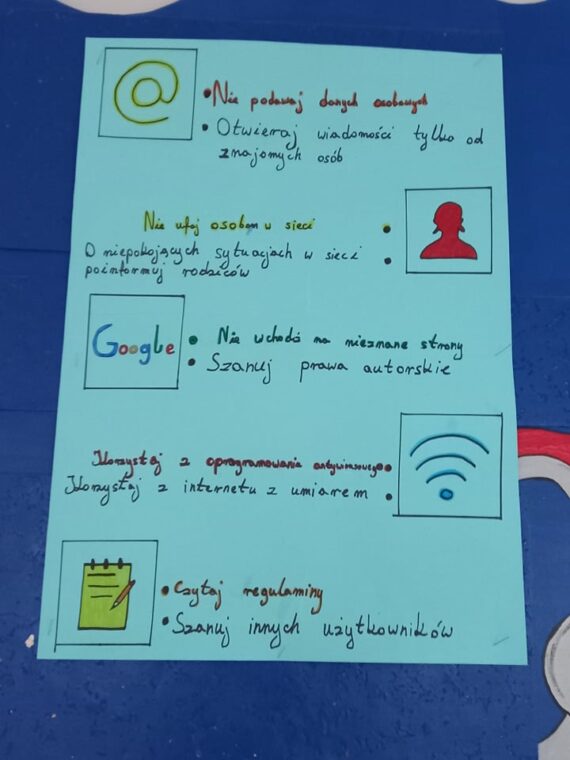 @
Nie podawaj danych osobowych
Otwieraj wiadomości tylko od
znajomych osób
Nie ufaj osobom w sieci
O niepokojących sytuacjach w sieci
poinformuj rodziców
Google
Nie wchodź na nieznane strony
Szanuj prawa autorskie
Korzystaj z oprogramowania antywirusowego
Korzystaj z internetu z umiarem
Czytaj regulaminy
Szanuj innych użytkowników